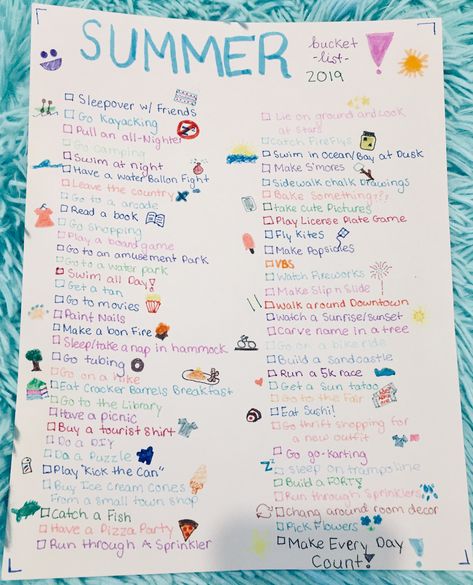 SUMMER
bucket
-list-
2019
Sleepover w/ Friends
Go Kayacking
Pull an all-Nighter
Go camping
Swim at night
Have a water Ballon Fight
Leave the country
Go to a arcade
Read a book
Go shopping
Play a board game
Go to an amusement Park
Go to a water park
Swim all Day!
Get a tan
Go to movies
Paint Nails
Make a bon Fire
Sleep/take a nap in hammock
Go tubing
Go on a hike
Eat Cracker Barrels Breakfast
Go to the Library
Have a picnic
Buy a tourist shirt
Do a DIY
Do a Puzzle
Play "Kick the Can"
Buy Ice Cream Cones
From a small town shop
Catch a Fish
Have a Pizza Party
Run through A Sprinkler
Lie on ground and Look
at Stars
Catch FireFlys
Swim in Ocean/Bay at Dusk
Make S'mores
Sidewalk chalk Drawings
Bake Something???
Take Cute Pictures
Play License Plate Game
Fly Kites
Make Popsicles
VBS
Watch Fireworks
Make Slip n Slide
Walk around Downtown
Watch a Sunrise/Sunset
Carve name in a tree
Go on a bike ride
Build a Sandcastle
Run a 5K race
Get a Sun tatoo
Go to the Fair
Eat Sushi!
Go thrift shopping for
a new outfit
Go go-karting
Sleep on trampoline
Build a FORT
Run through Sprinklers
Chang around room decor
Pick Flowers
Make Every Day
Count!